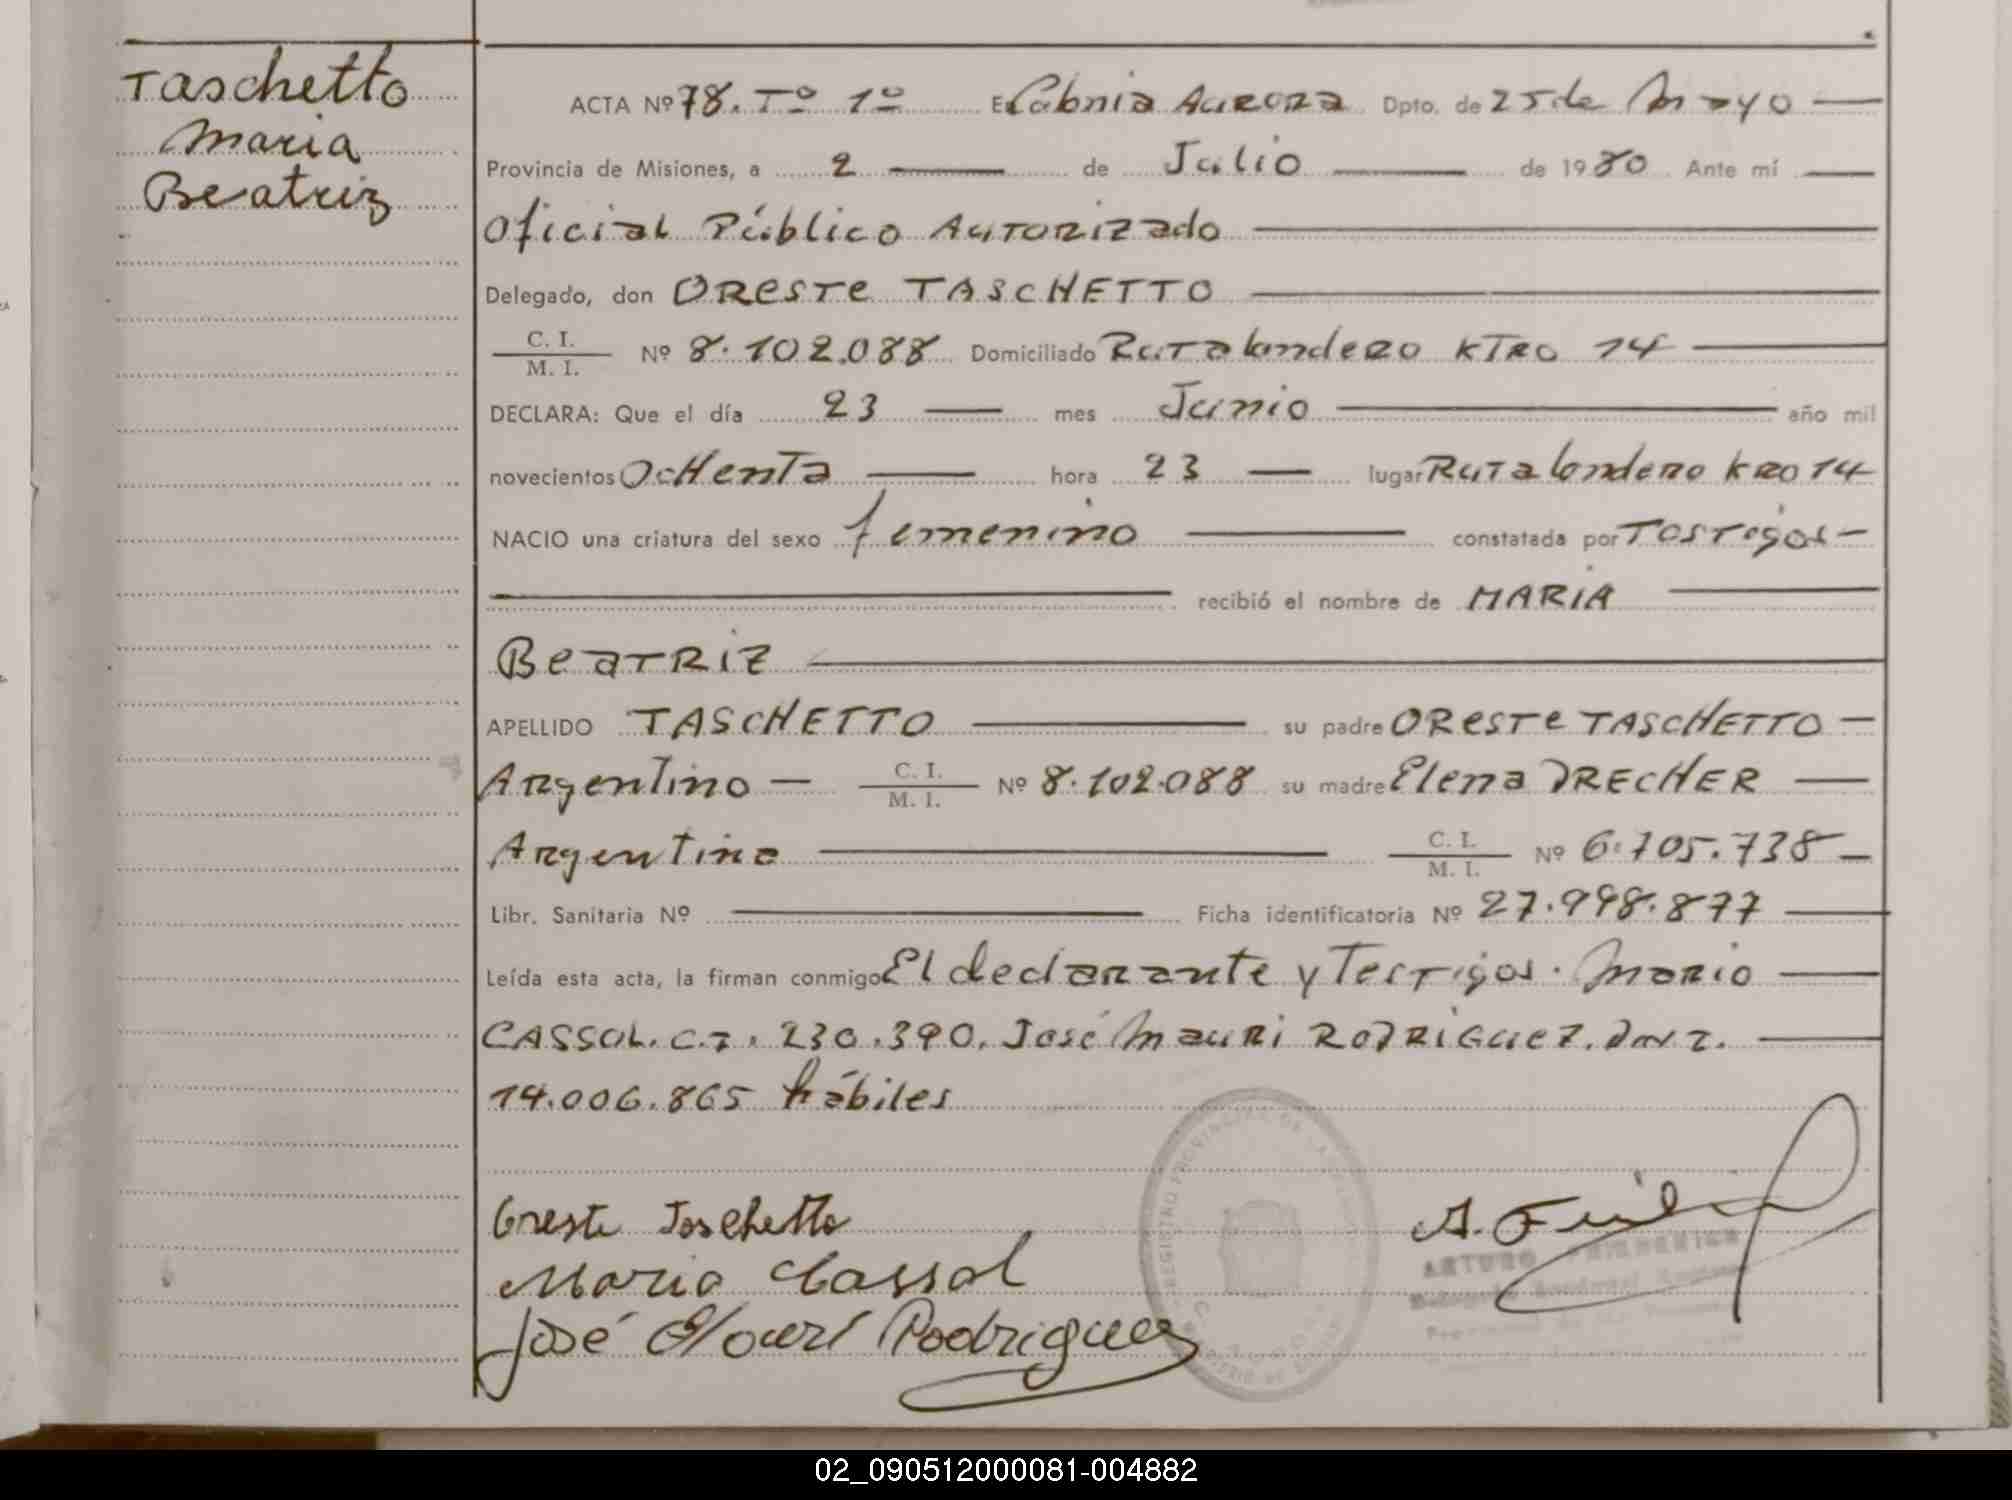 Taschetto
Maria
Beatriz
ACTA Nº 78. Tº 1º E Colonia Aurora Dpto. de 25 de Mayo
Provincia de Misiones, a 2 de Julio de 1980 Ante mí
Oficial Público Autorizado
Delegado, don ORESTE TASCHETTO
C. I.
M. I. Nº 8.102.088 Domiciliado Ruta londero KTRO 14
DECLARA: Que el día 23 mes Junio año mil
novecientos OcHenta hora 23 lugar Ruta londero KRO 14
NACIO una criatura del sexo femenino constatada por Testigos
recibió el nombre de MARIA
BeaTRiZ
APELLIDO TASCHETTO su padre ORESTE TASCHETTO
Argentino C. I.
M. I. Nº 8.102.088 su madre Elena DRECHER
Argentina C. I.
M. I. Nº 6.705.738
Libr. Sanitaria Nº Ficha identificatoria Nº 27.998.877
Leída esta acta, la firman conmigo El declarante y Testigos. Mario
CASSOL. C.I. 230.390. José Mauri RODRIGUEZ. DNI.
14.006.865 hábiles
Oreste Taschetto
Mario Cassol
José Mauri Rodriguez
ARTURO
02_090512000081-004882